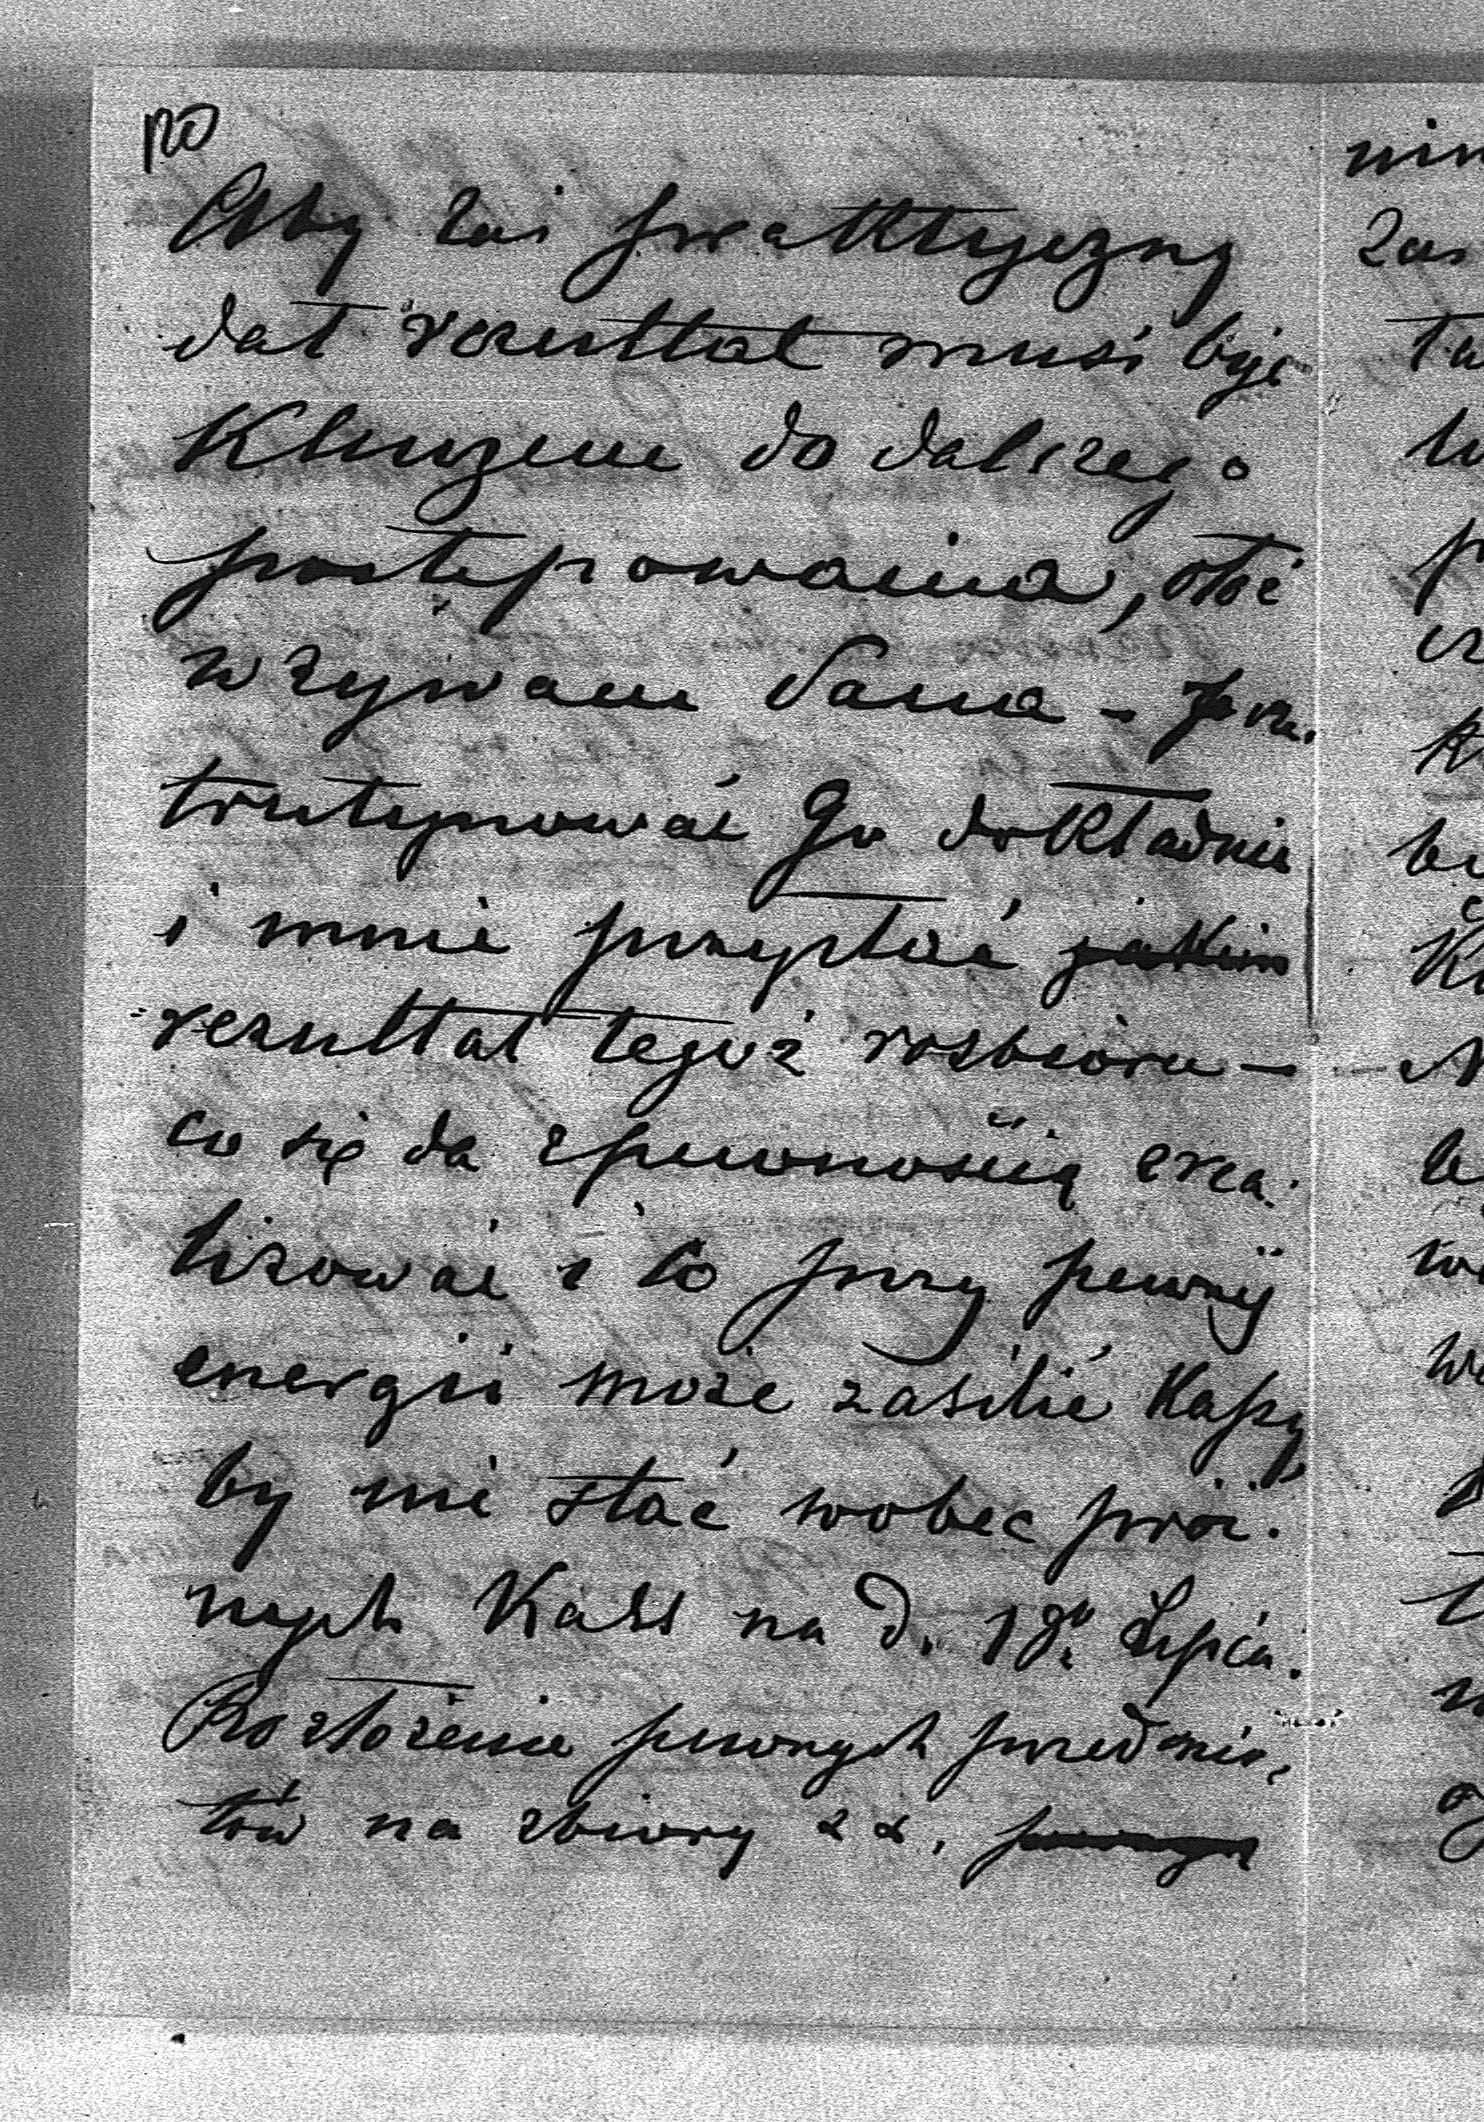 120
Aby zaś praktyczny
dał rezultat musi być
Kluczem do dalszego
postępowania, otóż
wzywam Pana – prze.
trutynować Go dokładnie
i mnie przysłać jakim
rezultat tegoż rozbioru –
co się da zpewnością zrea.
lizować i to przy pewnéj
energii może zasilić Kassy,
by nie stać wobec próż.
nych Kass na d. 1go Lipca.
Rozłożenie pewnych przedmio,
tów na zbiory